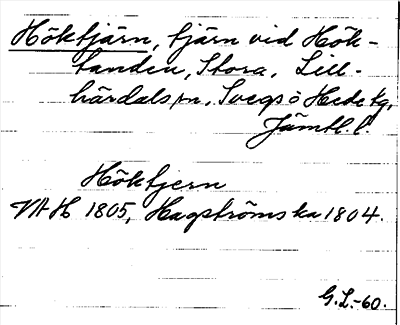 Höktjärn, tjärn vid Hök-
tanden, Stora, Lill-
härdals sn, Svegs o Hede tg,
Jämtl. l.
Höktjern
VAH 1805, Hagströms ka 1804.
G.L.-60.